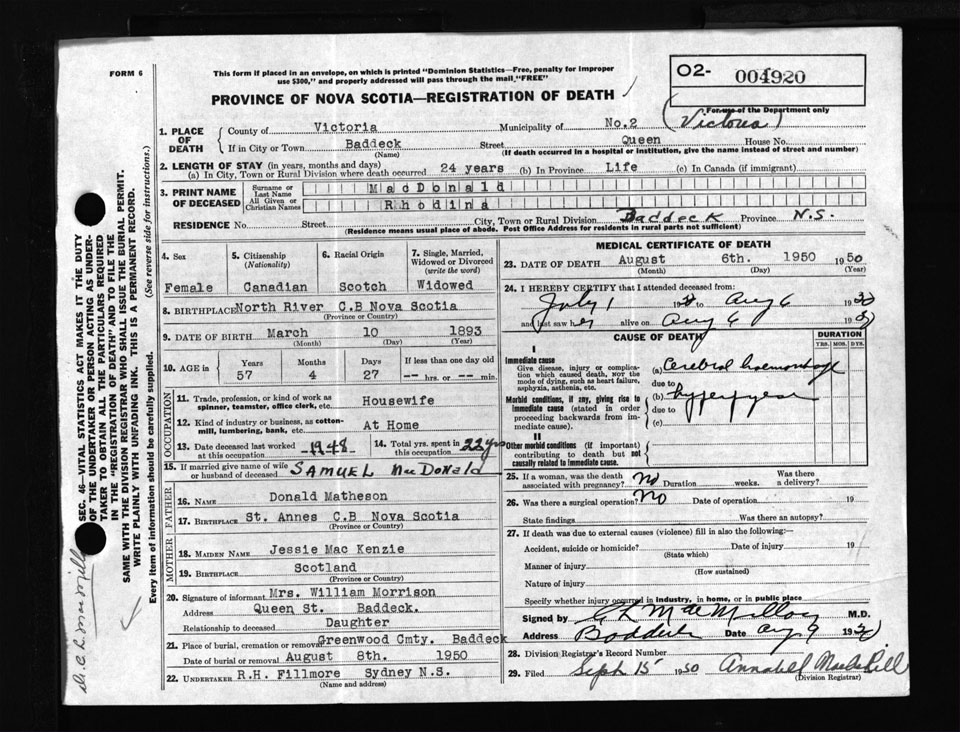 FORM 6
This form if placed in an envelope, on which is printed "Dominion Statistics—Free, penalty for improper
use $300," and properly addressed will pass through the mail "FREE"
PROVINCE OF NOVA SCOTIA—REGISTRATION OF DEATH
O2- 004920
For use of the Department only
(Victoria)
1. PLACE OF DEATH
County of Victoria Municipality of No.2
If in City or Town Baddeck Street Queen House No.
(Name) (If death occurred in a hospital or institution, give the name instead of street and number)
2. LENGTH OF STAY (in years, months and days)
(a) In City, Town or Rural Division where death occurred 24 years (b) In Province Life (c) In Canada (if immigrant)
3. PRINT NAME OF DECEASED
Surname or Last Name MacDonald
All Given or Christian Names Rhodina
RESIDENCE No. Street City, Town or Rural Division Baddeck Province N.S.
(Residence means usual place of abode. Post Office Address for residents in rural parts not sufficient)
4. Sex 5. Citizenship (Nationality) 6. Racial Origin 7. Single, Married, Widowed or Divorced (write the word)
Female Canadian Scotch Widowed
8. BIRTHPLACE North River C.B Nova Scotia
(Province or Country)
9. DATE OF BIRTH March 10 1893
(Month) (Day) (Year)
10. AGE in Years Months Days If less than one day old
57 4 27 -- hrs. or -- min.
OCCUPATION
11. Trade, profession, or kind of work as spinner, teamster, office clerk, etc. Housewife
12. Kind of industry or business, as cotton-mill, lumbering, bank, etc. At Home
13. Date deceased last worked at this occupation 1948 14. Total yrs. spent in this occupation 22 yrs
15. If married give name of wife or husband of deceased SAMUEL MacDonald
FATHER
16. NAME Donald Matheson
17. BIRTHPLACE St. Annes C.B Nova Scotia
(Province or Country)
MOTHER
18. MAIDEN NAME Jessie Mac Kenzie
19. BIRTHPLACE Scotland
(Province or Country)
20. Signature of informant Mrs. William Morrison
Address Queen St. Baddeck.
Relationship to deceased Daughter
21. Place of burial, cremation or removal Greenwood Cmty. Baddeck
Date of burial or removal August 8th. 1950
22. UNDERTAKER R.H. Fillmore Sydney N.S.
(Name and address)
MEDICAL CERTIFICATE OF DEATH
23. DATE OF DEATH August 6th. 1950 1950
(Month) (Day) (Year)
24. I HEREBY CERTIFY that I attended deceased from:
July 1 19 to Aug 6 1950
and last saw her alive on Aug 6 1950
CAUSE OF DEATH
DURATION
YRS. MOS. DYS.
I
Immediate cause
Give disease, injury or complication which caused death, NOT the mode of dying, such as heart failure, asphyxia, asthenia, etc.
(a) Cerebral haemorrhage
due to
Morbid conditions, if any, giving rise to immediate cause (stated in order proceeding backwards from immediate cause).
(b)
due to
(c)
II
Other morbid conditions (if important) contributing to death but not causally related to immediate cause.
25. If a woman, was the death associated with pregnancy? No Duration weeks. Was there a delivery?
26. Was there a surgical operation? No Date of operation 19
State findings Was there an autopsy?
27. If death was due to external causes (violence) fill in also the following:—
Accident, suicide or homicide? Date of injury 19
(State which)
Manner of injury
(How sustained)
Nature of injury
Specify whether injury occurred in industry, in home, or in public place
Signed by C L MacMillan M.D.
Address Baddeck Date Aug 9 1950
28. Division Registrar's Record Number
29. Filed Sept 15 1950
(Division Registrar)
SEC. 46—VITAL STATISTICS ACT MAKES IT THE DUTY
OF THE UNDERTAKER OR PERSON ACTING AS UNDER-
TAKER TO OBTAIN ALL THE PARTICULARS REQUIRED
IN THE "REGISTRATION OF DEATH" AND TO FILE THE
SAME WITH THE DIVISION REGISTRAR WHO SHALL ISSUE THE BURIAL PERMIT.
WRITE PLAINLY WITH UNFADING INK. THIS IS A PERMANENT RECORD.
Every item of information should be carefully supplied. (See reverse side for instructions.)